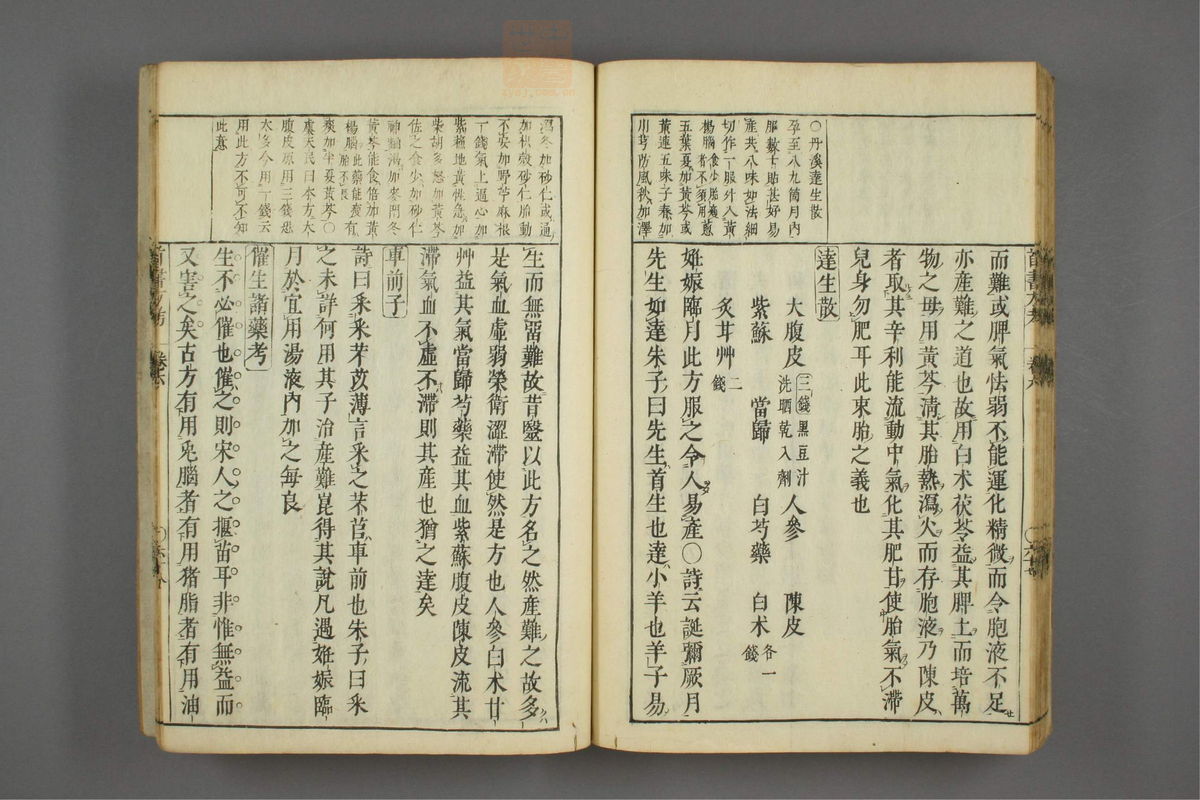 ○丹溪達生散
孕至八九箇月内
服數十貼甚好易
產共八味如法細
切作一服外入黃
楊腦食少胎瘦者不須用蔥
五葉夏加黃芩或
黃連五味子春加
川芎防風秋加澤
而難或脾氣怯弱不能運化精微而令胞液不足
亦產難之道也故用白术茯苓益其脾土而培萬
物之母用黃芩清其胎熱瀉火而存胞液乃陳皮
者取其辛利能流動中氣化其肥甘使胎氣不滯
兒身勿肥耳此束胎之義也
達生散
大腹皮三錢黑豆汁洗晒乾入劑 人參 陳皮
紫蘇 當歸 白芍藥 白术各一錢
炙甘艸二錢
姙娠臨月此方服之令人易產○詩云誕彌厥月
先生如達朱子曰先生首生也達小羊也羊子易
瀉冬加砂仁或通
加枳殼砂仁胎動
不安加野苧麻根
一錢氣上逼心加
紫種地黃性急加
柴胡多怒加黃芩
佐之食少加砂仁
神麴渴加麥門冬
黃芩能食倍加黃
楊腦此藥能瘦胎不長有
痰加半夏黃芩○
虞天民曰本方大
腹皮原用三錢恐
太多今用一錢云
用此方不可不知
此意
生而無留難故昔醫以此方名之然產難之故多
是氣血虛弱榮衛澀滯使然是方也人參白术甘
艸益其氣當歸芍藥益其血紫蘇腹皮陳皮流其
滯氣血不虛不滯則其產也猶之達矣
車前子
詩曰采采芣苡薄言采之芣苢車前也朱子曰采
之未詳何用其子治產難崑得其說凡遇姙娠臨
月於宜用湯液内加之每良
催生諸藥考
生不必催也催之則宋人之揠苗耳非惟無益而
又害之矣古方有用兎腦者有用猪脂者有用油
卷六